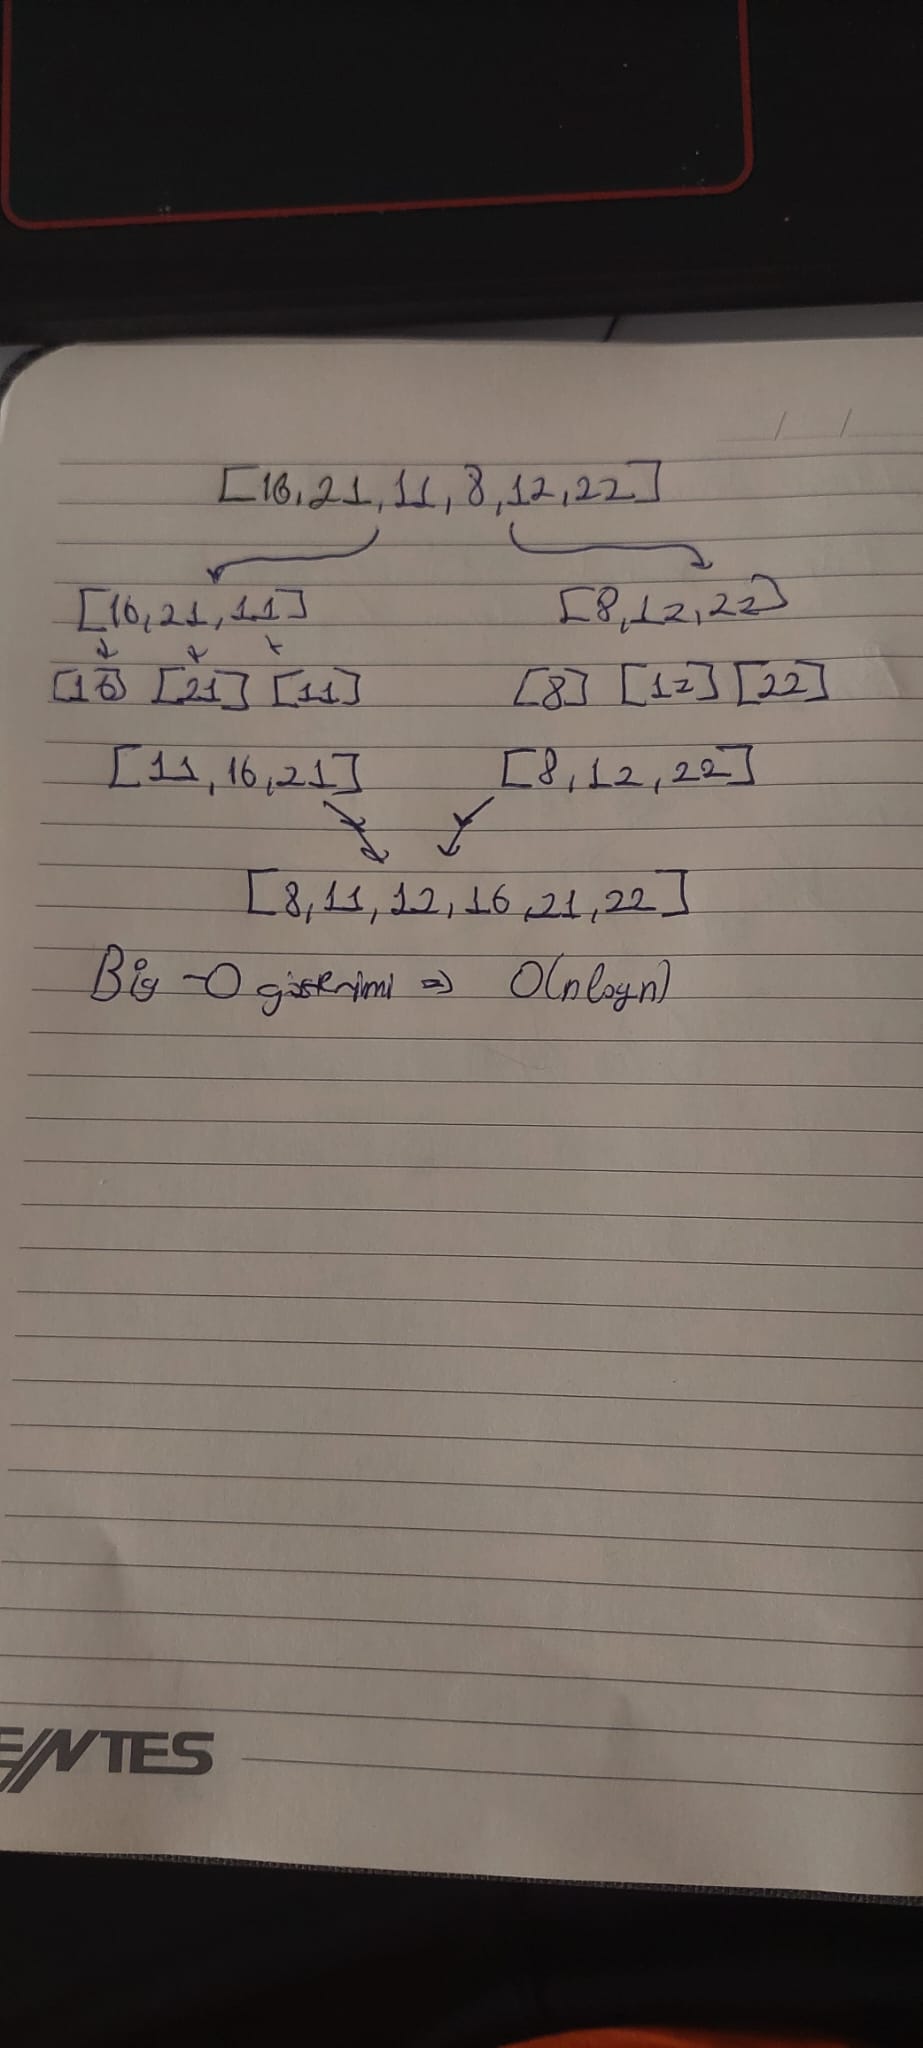 [16,21,11,8,12,22]
[16,21,11] [8,12,22]
[16] [21] [11] [8] [12] [22]
[11,16,21] [8,12,22]
[8,11,12,16,21,22]
Big-O gösterimi => O(nlogn)
ENTES